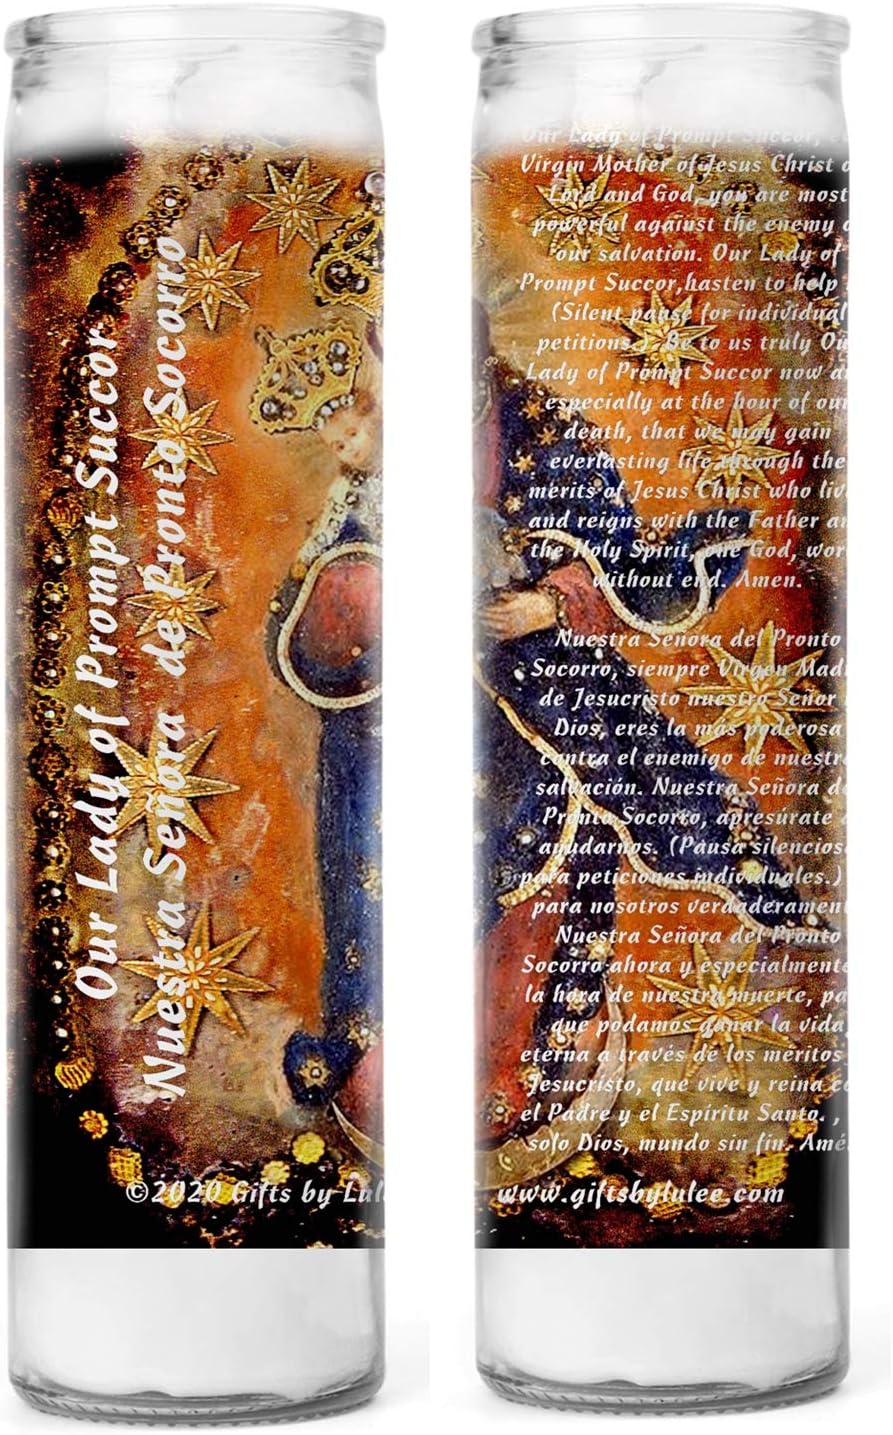 Our Lady of Prompt Succor
Nuestra Señora de Pronto Socorro
©2020 Gifts by
Our Lady of Prompt Succor,
Virgin Mother of Jesus Christ
Lord and God, you are most
powerful against the enemy
our salvation. Our Lady of
Prompt Succor,hasten to help
(Silent pause for individual
petitions.). Be to us truly
Lady of Prompt Succor now
especially at the hour of
death, that we may gain
everlasting life through the
merits of Jesus Christ who
and reigns with the Father
the Holy Spirit, one God,
without end. Amen.
Nuestra Señora del Pronto
Socorro, siempre Virgen
de Jesucristo nuestro Señor
Dios, eres la más poderosa
contra el enemigo de
salvación. Nuestra Señora
Pronto Socorro, apresúrate
ayudarnos. (Pausa
para peticiones individuales.)
para nosotros
Nuestra Señora del Pronto
Socorro ahora y especialmente
la hora de nuestra muerte,
que podamos ganar la vida
eterna a través de los méritos
Jesucristo, que vive y reina
el Padre y el Espíritu Santo. ,
solo Dios, mundo sin fin.
www.giftsbylulee.com